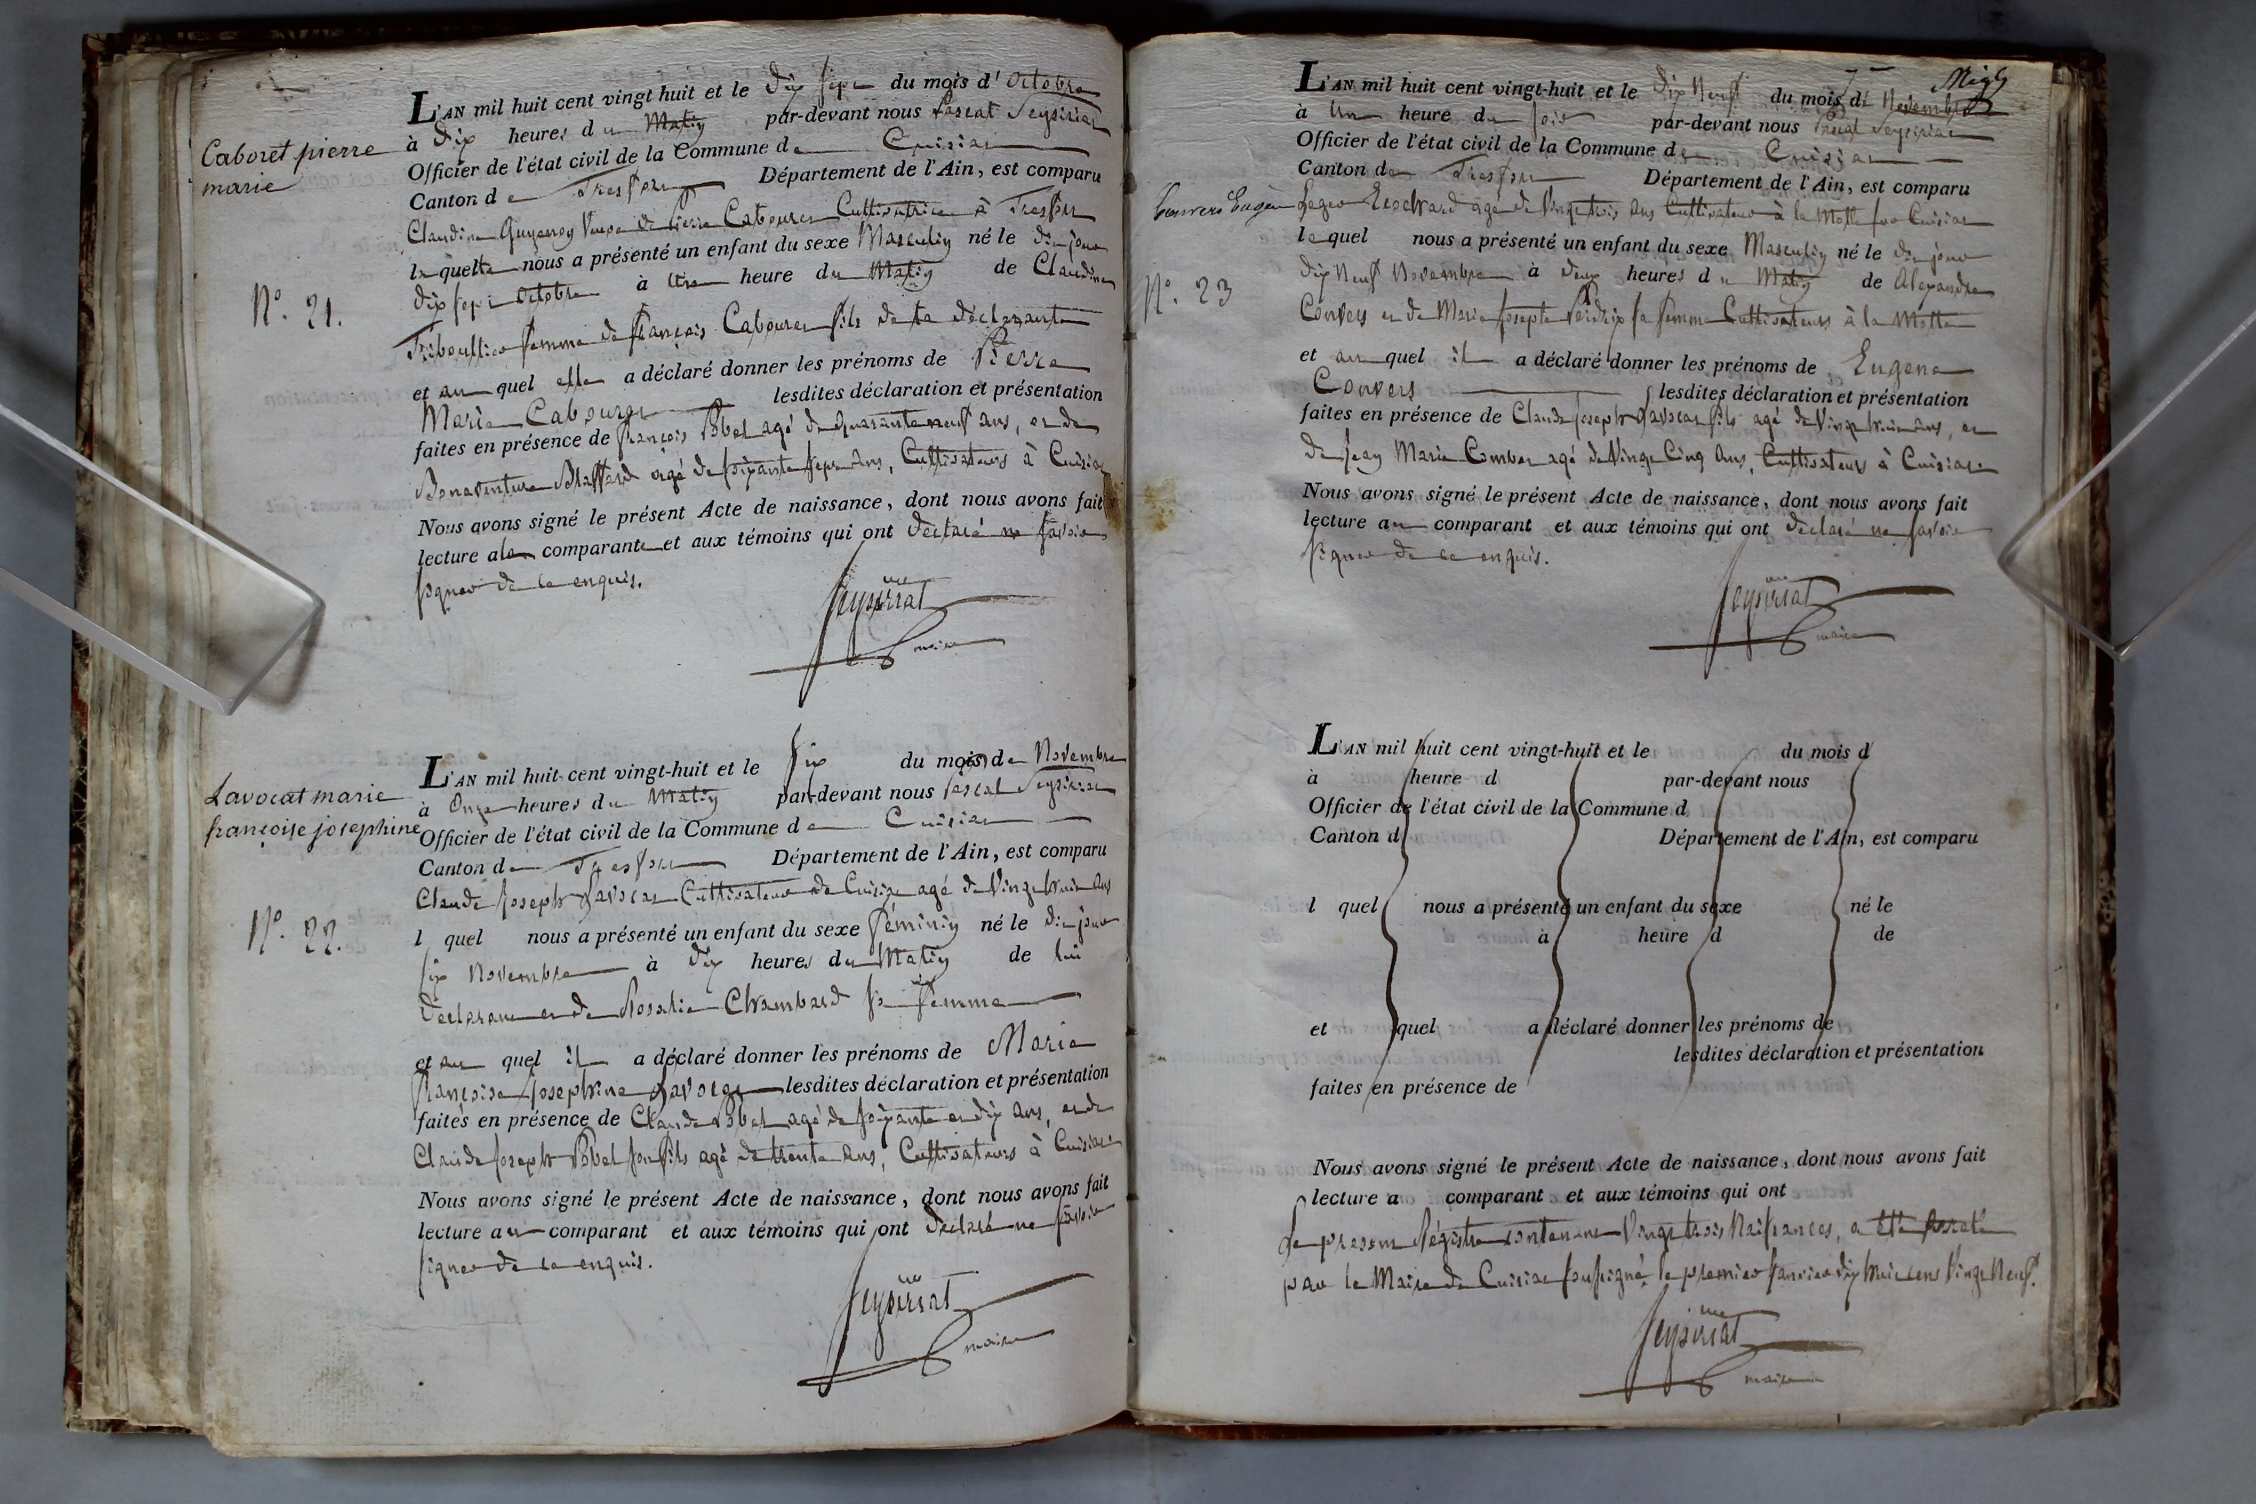 Caboret pierre
marie
N.° 21.
L'AN mil huit cent vingt-huit et le dix sept du mois d'Octobre
à dix heures du Matin par-devant nous Pascal Seysiriat
Officier de l'état civil de la Commune de Cuisiat
Canton de Tresfort Département de l'Ain, est comparu
Claudine Guyennoy Veuve de Pierre Cabouret Cultivatrice à Tresfort
laquelle nous a présenté un enfant du sexe Masculin né le dit jour
dix sept Octobre à Une heure du Matin de Claudine
femme de françois Cabouret fils de la déclarante
et au quel elle a déclaré donner les prénoms de Pierre
Marie Cabouret lesdites déclaration et présentation
faites en présence de françois Pobel agé de quarante neuf ans, et de
Bonaventure agé de soixante sept ans, Cultivateurs à Cuisiat
Nous avons signé le présent Acte de naissance, dont nous avons fait
lecture a la comparante et aux témoins qui ont déclaré ne savoir
signer de ce enquis.
Seysiriat
maire
Lavocat marie
françoise josephine
N.° 22.
L'AN mil huit cent vingt-huit et le six du mois de Novembre
à Onze heures du Matin par-devant nous Pascal Seysiriat
Officier de l'état civil de la Commune de Cuisiat
Canton de Tresfort Département de l'Ain, est comparu
Claude joseph Lavocat Cultivateur de Cuisiat agé de Vingt huit ans
l quel nous a présenté un enfant du sexe féminin né le dit jour
six Novembre à dix heures du Matin de lui
déclarant et de Rosalie Chambard sa femme
et au quel il a déclaré donner les prénoms de Marie
françoise josephine Lavocat lesdites déclaration et présentation
faites en présence de Claude Pobel agé de soixante et dix ans, et de
Claude joseph Pobel son fils agé de trente ans, Cultivateurs à Cuisiat
Nous avons signé le présent Acte de naissance, dont nous avons fait
lecture au comparant et aux témoins qui ont déclaré ne savoir
signer de ce enquis.
Seysiriat
maire
Convers Eugène
N.° 23
L'AN mil huit cent vingt-huit et le dix Neuf du mois de Novembre
à Une heure du soir par-devant nous Pascal Seysiriat
Officier de l'état civil de la Commune de Cuisiat
Canton de Tresfort Département de l'Ain, est comparu
agé de Vingt trois ans Cultivateur à la Motte sur Cuisiat
lequel nous a présenté un enfant du sexe Masculin né le dit jour
dix Neuf Novembre à deux heures du Matin de Alexandre
Convers et de Marie josepte Perdrix sa femme Cultivateurs à la Motte
et au quel il a déclaré donner les prénoms de Eugene
Convers lesdites déclaration et présentation
faites en présence de Claude joseph Lavocat fils agé de Vingt huit ans, et
de jean Marie Combet agé de Vingt Cinq ans, Cultivateurs à Cuisiat
Nous avons signé le présent Acte de naissance, dont nous avons fait
lecture au comparant et aux témoins qui ont déclaré ne savoir
signer de ce enquis.
Seysiriat
maire
L'AN mil huit cent vingt-huit et le du mois d
à heure d par-devant nous
Officier de l'état civil de la Commune d
Canton d Département de l'Ain, est comparu
l quel nous a présenté un enfant du sexe né le
à heure d de
et quel a déclaré donner les prénoms de
lesdites déclaration et présentation
faites en présence de
Nous avons signé le présent Acte de naissance, dont nous avons fait
lecture a comparant et aux témoins qui ont
Le present Régistre contenant Vingt trois Naissances, a été arreté
par le Maire de Cuisiat soussigné le premier janvier dix huit cent Vingt Neuf.
Seysiriat
maire